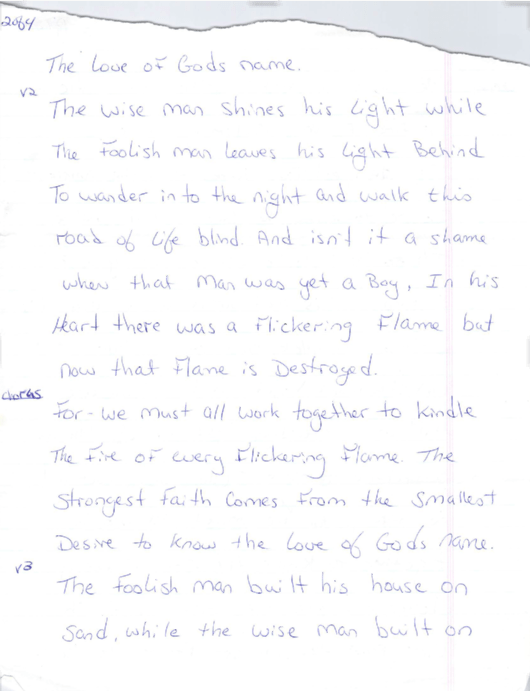 2084
The Love of Gods name.
v2
The wise man shines his Light while
The Foolish man leaves his Light Behind
To wander in to the night and walk this
road of Life blind. And isn't it a shame
when that Man was yet a Boy, In his
Heart there was a Flickering Flame but
now that Flame is Destroyed.
chorus
For-we must all work together to kindle
The Fire of every Flickering Flame. The
Strongest Faith Comes From the Smallest
Desire to know the Love of Gods name.
v3
The Foolish man built his house on
Sand, while the wise man built on